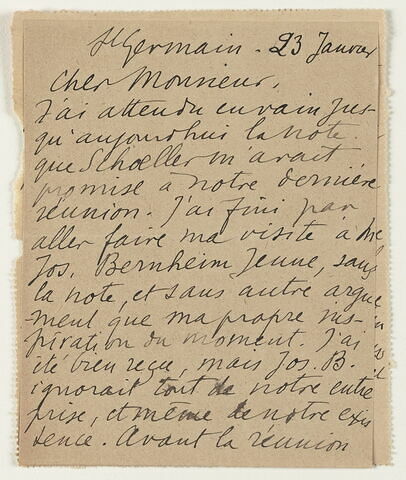 St Germain - 23 Janvier
Cher Monsieur,
J'ai attendu en vain jus-
qu'aujourdhui la note
que Schoeller m'avait
promise à notre dernière
réunion. J'ai fini par
aller faire ma visite à Mr
Jos. Bernheim Jeune, sans
la note, et sans autre argu
ment que ma propre ins-
piration du moment. J'ai
été bien reçue, mais Jos. B.
ignorait tout de notre entre
prise, et même de notre exis
tence. Avant la réunion